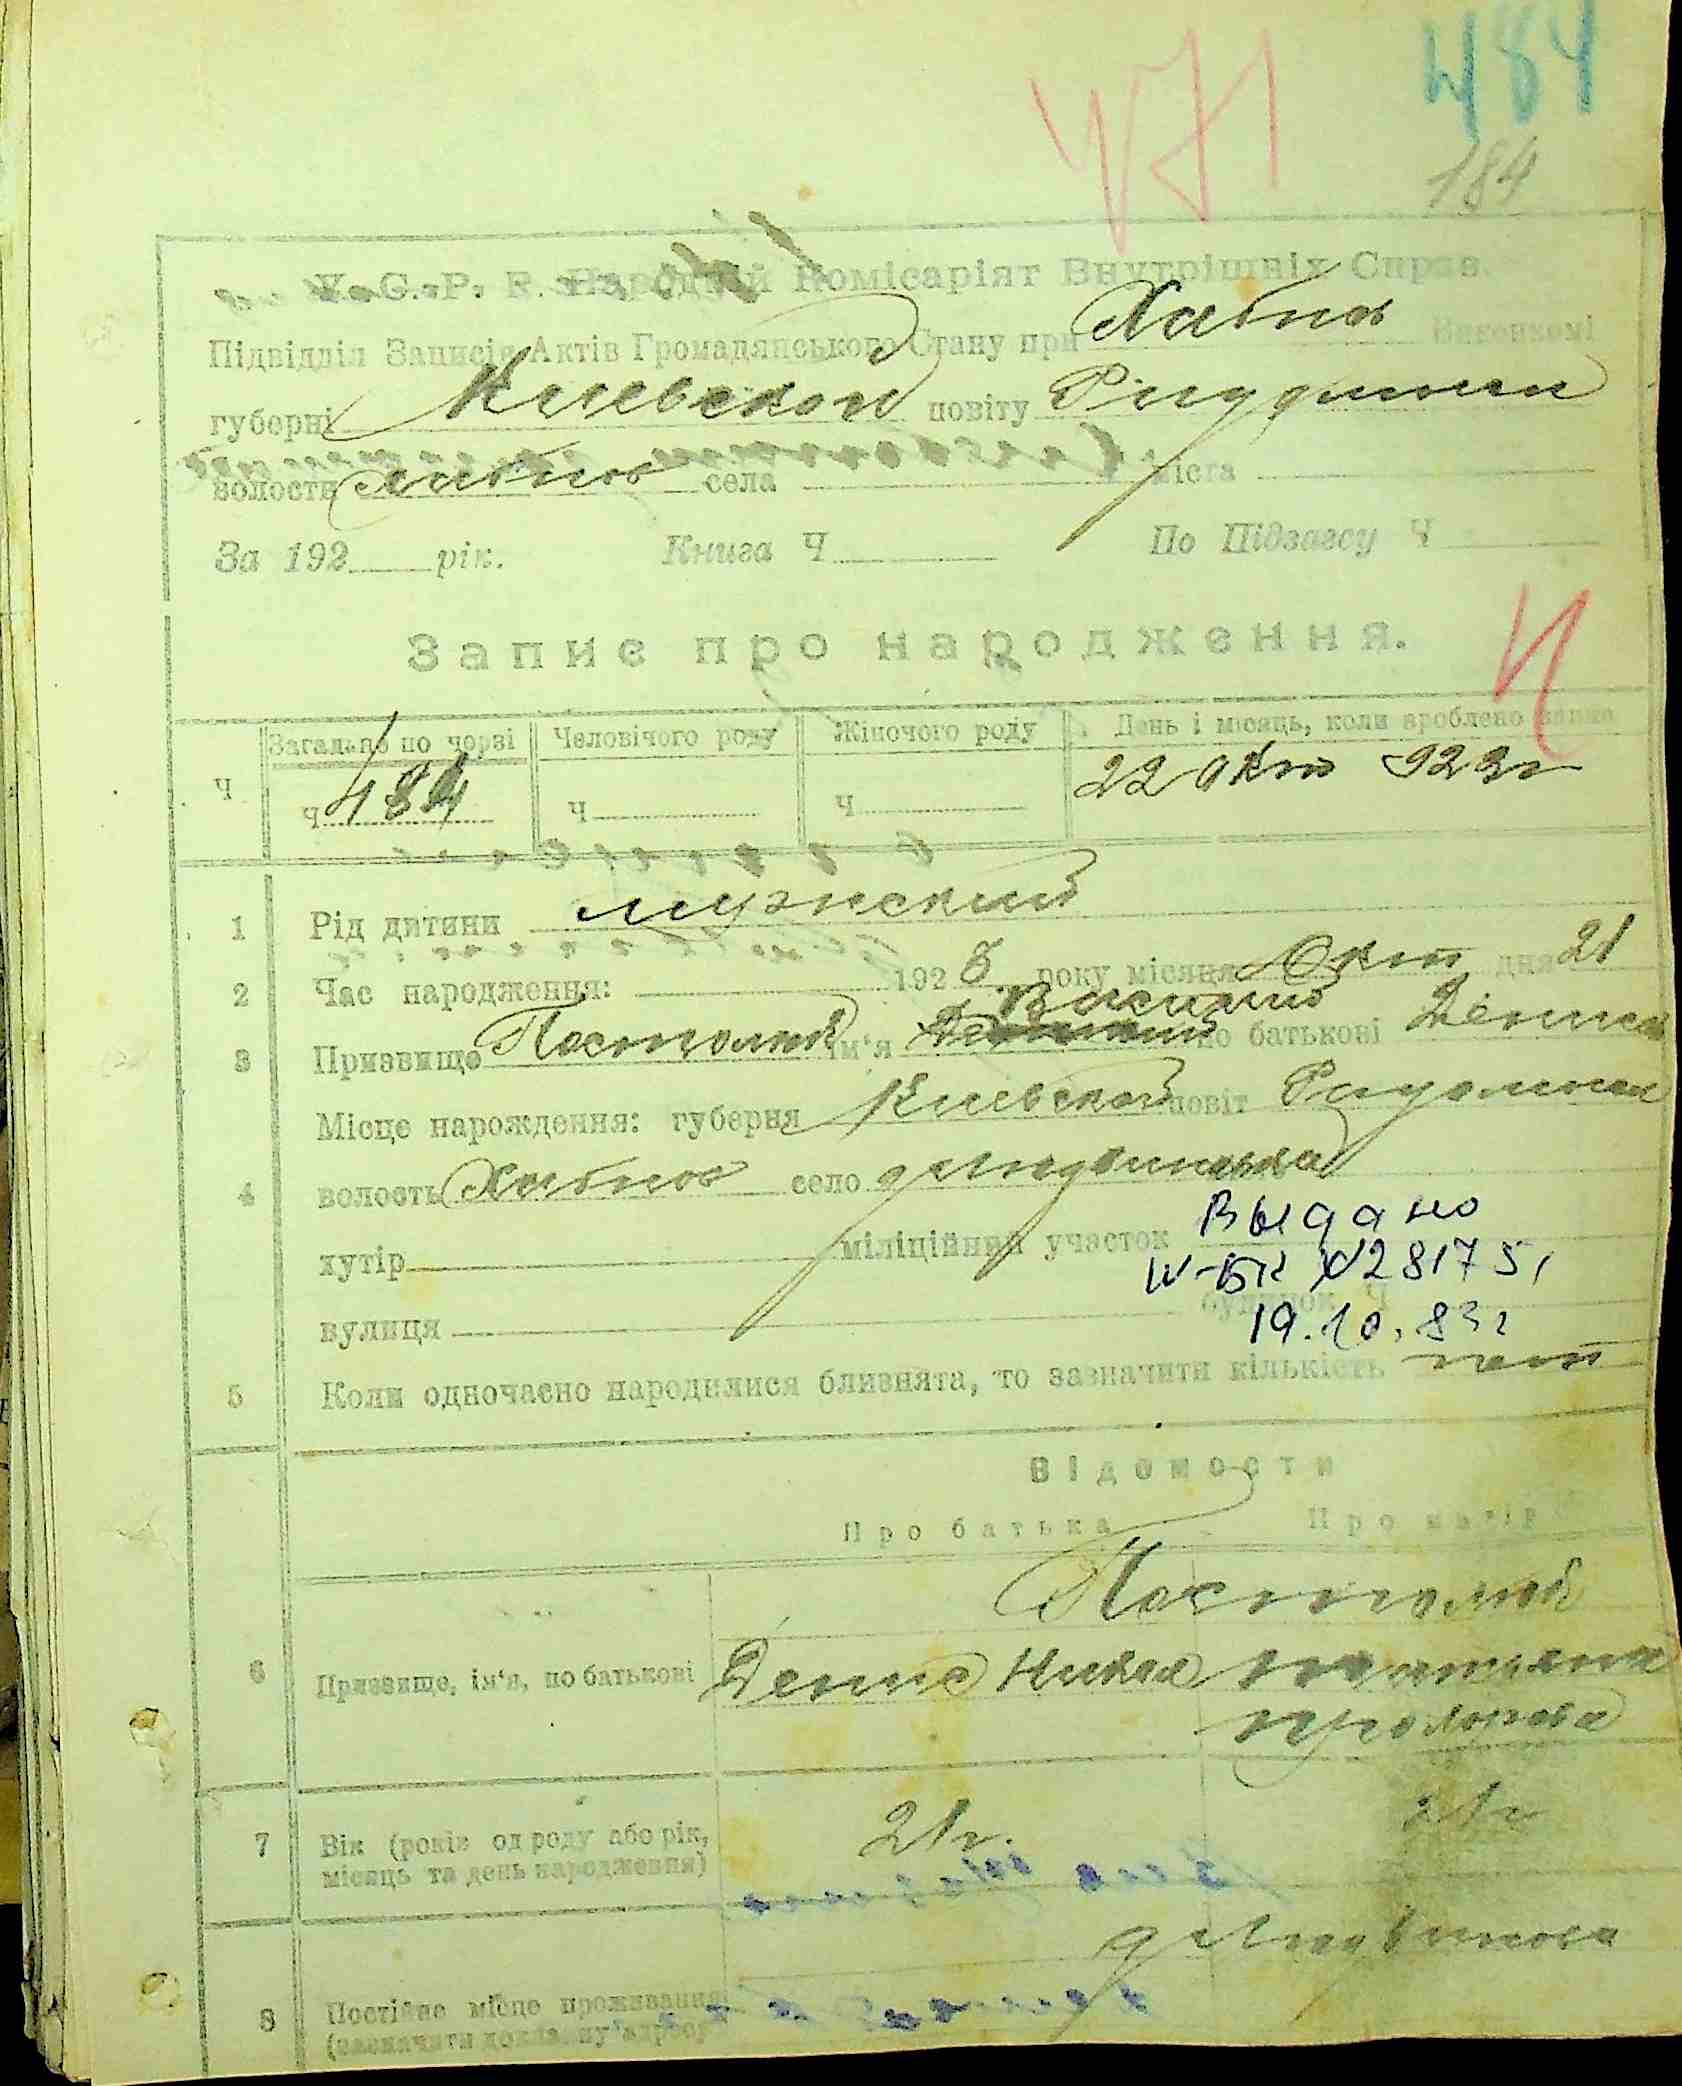 471
484
184
У. С. Р. Р. Народній Комісаріят Внутрішніх Справ.
Підвідділ Записів Актів Громадянського Стану при Хабнов Виконкомі
губерні Киевской повіту Радомысл
волости Хабнов села міста
За 192 рік. Книга Ч По Підзагсу Ч
Запис про народження.
Загально по черзі Человічого роду Жіночого роду День і місяць, коли зроблено запис
Ч Ч 484 Ч Ч 22 Окт 923г
1 Рід дитини мужский
2 Час народження: 1923 року місяця Окт дня 21
Василий
3 Призвище Постолюк ім'я по батькові Денисов
Місце народження: губерня Киевской повіт Радомысл
4 волость Хабнов село
хутір міліційний участок Выдано
ІV-БК №28175,
вулиця будинок Ч 19.10.83г
5 Коли одночасно народилися близнята, то зазначити кількість нет
Відомости
Про батька Про матір
6 Призвище, ім'я, по батькові
Денис
Прохорова
7 Вік (років од роду або рік, місяць та день народження) 21г. 21г
8 Постійне місце проживання
(зазначити докладну адресу